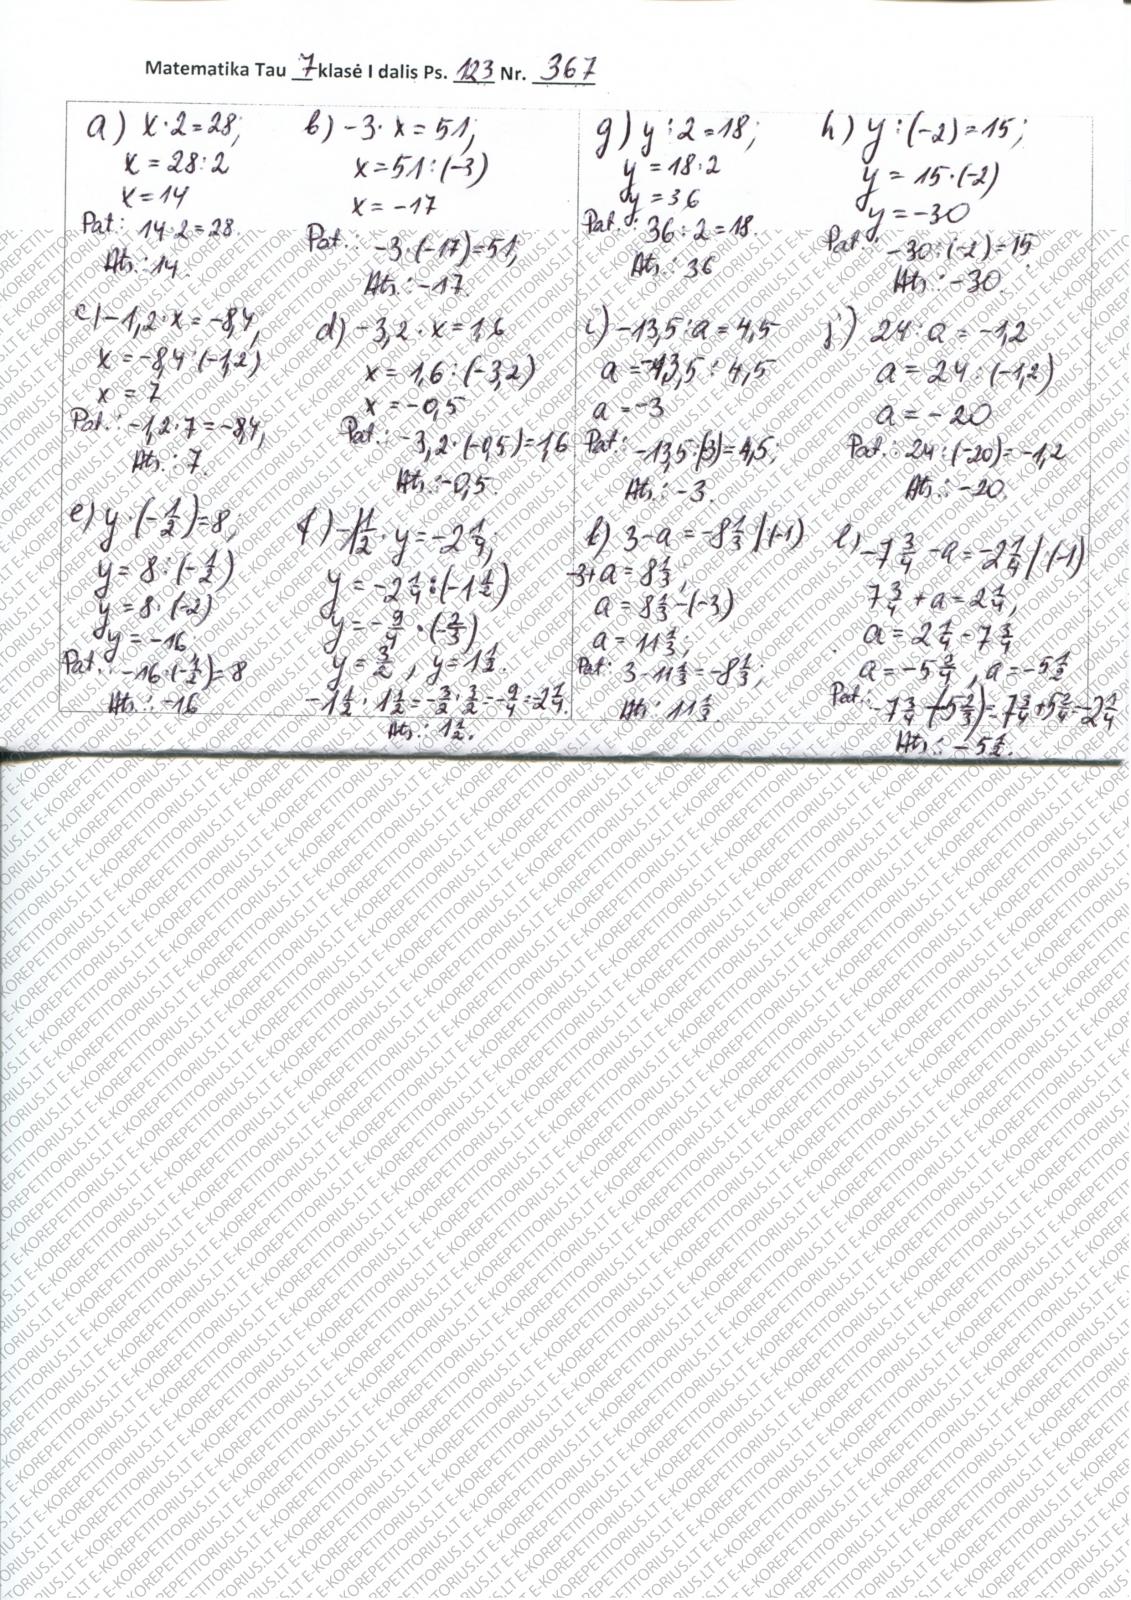 Matematika Tau 7 klasė I dalis Ps. 123 Nr. 367
a) x·2=28;
x=28:2
x=14
Pat.: 14·2=28.
Ats.: 14.
b) -3·x=51;
x=51:(-3)
x=-17
Pat.: -3·(-17)=51;
Ats.: -17.
c) -1,2·x=-8,4;
x=-8,4:(-1,2)
x=7
Pat.: -1,2·7=-8,4;
Ats.: 7.
d) -3,2·x=1,6
x=1,6:(-3,2)
x=-0,5
Pat.: -3,2·(-0,5)=1,6
Ats.: -0,5.
e) y·(-1/2)=8;
y=8:(-1/2)
y=8·(-2)
y=-16
Pat.: -16·(-1/2)=8
Ats.: -16
f) -1 1/2·y=-2 1/4;
y=-2 1/4:(-1 1/2)
y=-9/4·(-2/3)
y=3/2, y=1 1/2.
-1 1/2·1 1/2=-3/2·3/2=-9/4=-2 1/4.
Ats.: 1 1/2.
g) y:2=18;
y=18·2
y=36
Pat.: 36:2=18.
Ats.: 36
h) y:(-2)=15;
y=15·(-2)
y=-30
Pat.: -30:(-2)=15.
Ats.: -30.
i) -13,5:a=4,5
a=-13,5:4,5
a=-3
Pat.: -13,5:(-3)=4,5;
Ats.: -3.
j) 24:a=-1,2
a=24:(-1,2)
a=-20
Pat.: 24:(-20)=-1,2
Ats.: -20.
k) 3-a=-8 1/3 /·(-1)
-3+a=8 1/3;
a=8 1/3-(-3)
a=11 1/3;
Pat: 3-11 1/3=-8 1/3;
Ats: 11 1/3.
l) -7 3/4-a=-2 1/4 /·(-1)
7 3/4+a=2 1/4;
a=2 1/4-7 3/4
a=-5 2/4, a=-5 1/2
Pat.: -7 3/4-(-5 2/3)=-7 3/4+5 2/4=-2 1/4
Ats.: -5 1/2.
E-KOREPETITORIUS.LT